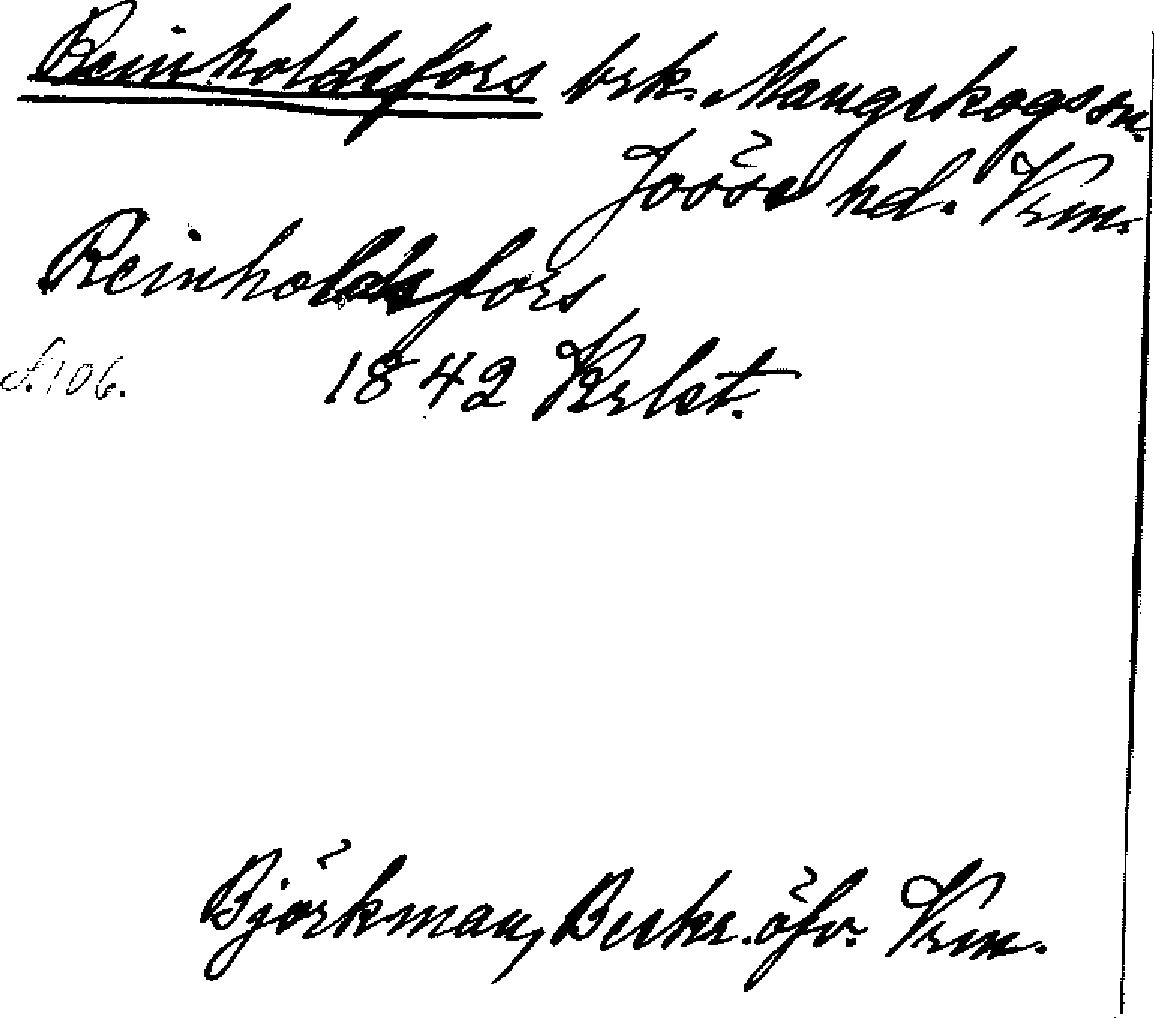 Reinholdsfors brk. Mangskogs sn.
Jösse hd. Vrm.
Reinholdsfors
s. 106. 1842 Krlst.
Björkman, Beskr. öfv. Vrm.